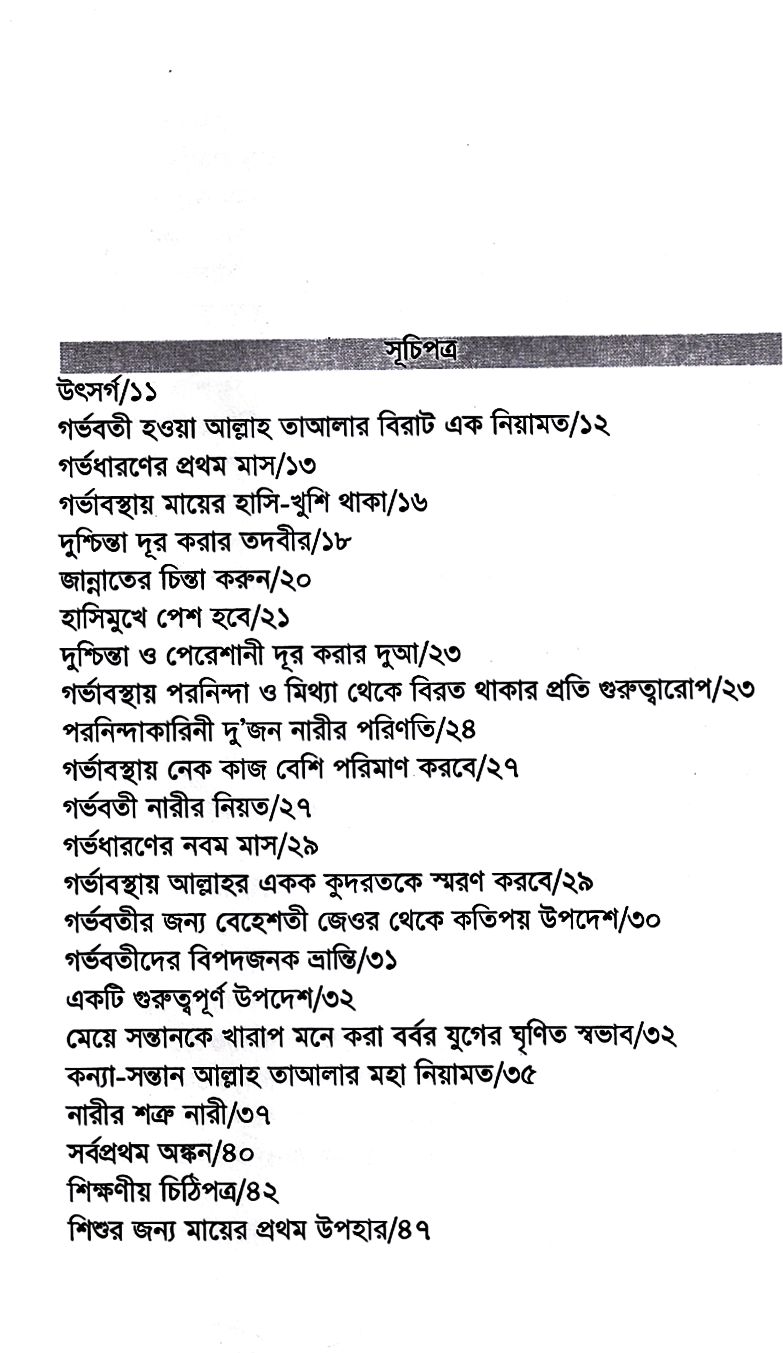 সূচিপত্র
উৎসর্গ/১১
গর্ভবতী হওয়া আল্লাহ তাআলার বিরাট এক নিয়ামত/১২
গর্ভধারণের প্রথম মাস/১৩
গর্ভাবস্থায় মায়ের হাসি-খুশি থাকা/১৬
দুশ্চিন্তা দূর করার তদবীর/১৮
জান্নাতের চিন্তা করুন/২০
হাসিমুখে পেশ হবে/২১
দুশ্চিন্তা ও পেরেশানী দূর করার দুআ/২৩
গর্ভাবস্থায় পরনিন্দা ও মিথ্যা থেকে বিরত থাকার প্রতি গুরুত্বারোপ/২৩
পরনিন্দাকারিনী দু'জন নারীর পরিণতি/২৪
গর্ভাবস্থায় নেক কাজ বেশি পরিমাণ করবে/২৭
গর্ভবতী নারীর নিয়ত/২৭
গর্ভধারণের নবম মাস/২৯
গর্ভাবস্থায় আল্লাহর একক কুদরতকে স্মরণ করবে/২৯
গর্ভবতীর জন্য বেহেশতী জেওর থেকে কতিপয় উপদেশ/৩০
গর্ভবতীদের বিপদজনক ভ্রান্তি/৩১
একটি গুরুত্বপূর্ণ উপদেশ/৩২
মেয়ে সন্তানকে খারাপ মনে করা বর্বর যুগের ঘৃণিত স্বভাব/৩২
কন্যা-সন্তান আল্লাহ তাআলার মহা নিয়ামত/৩৫
নারীর শত্রু নারী/৩৭
সর্বপ্রথম অঙ্কন/৪০
শিক্ষণীয় চিঠিপত্র/৪২
শিশুর জন্য মায়ের প্রথম উপহার/৪৭